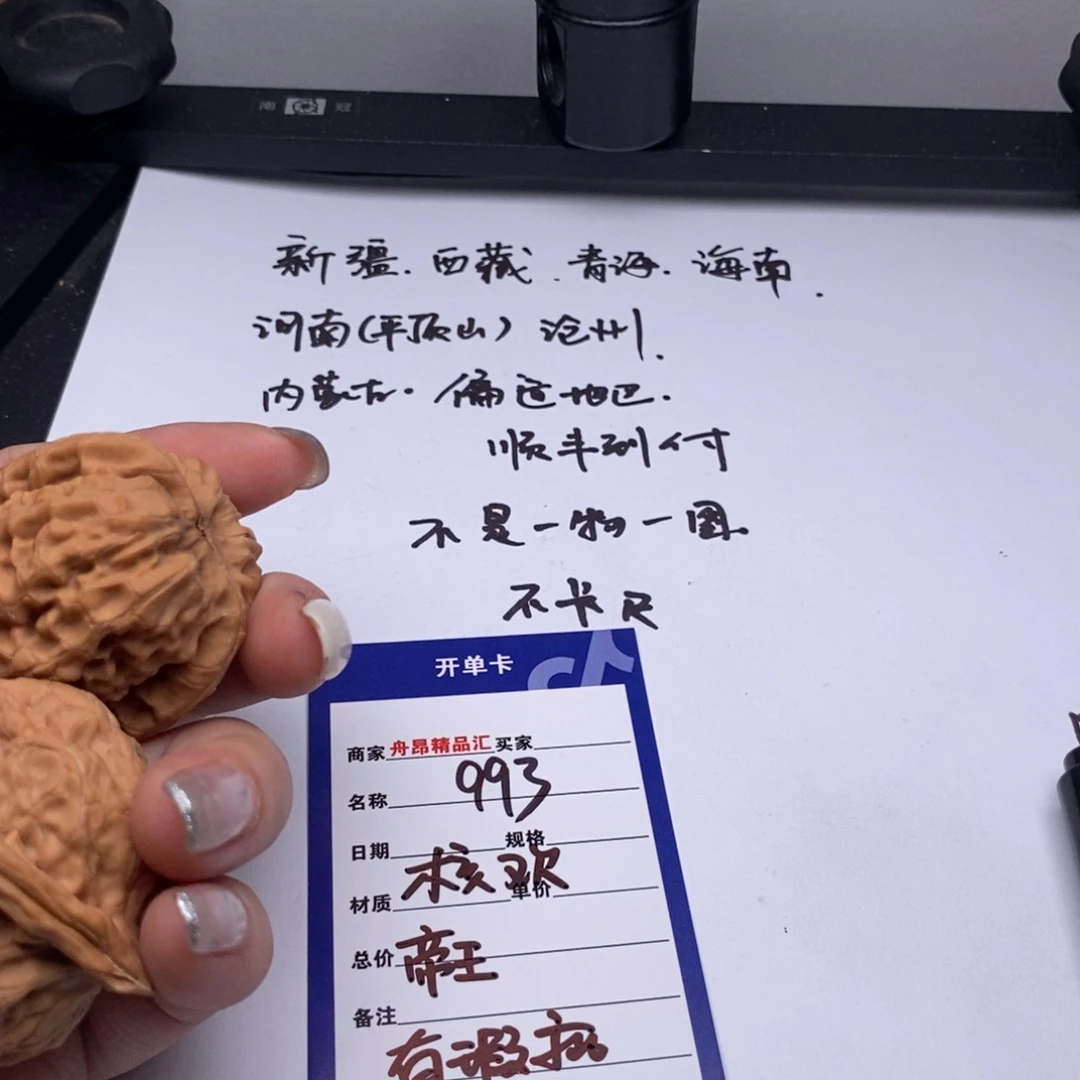 南 冠
新疆.西藏.青海.海南.
河南(平顶山)沧州.
内蒙古.偏远地区.
顺丰到付
不是一物一图.
不卡尺
开单卡
商家 舟昂精品汇 买家
993
名称
日期 规格
核欢
材质 单价
总价 帝王
备注
有瑕疵